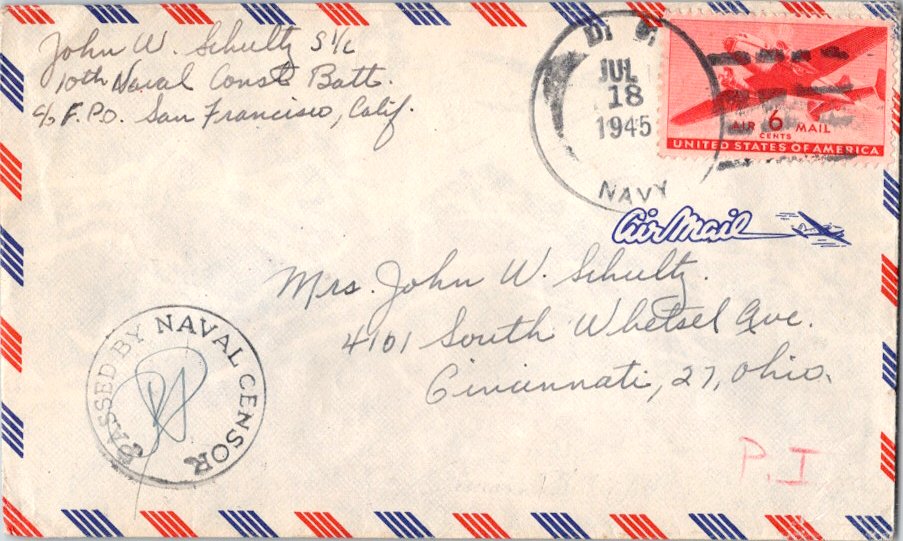 John W. Schultz S1/c
10th Naval Const Batt.
c/o F.P.O. San Francisco, Calif.
JUL
18
1945
NAVY
AIR 6 MAIL
CENTS
UNITED STATES OF AMERICA
Air Mail
Mrs. John W. Schultz.
4101 South Whetsel Ave.
Cincinnati, 27, Ohio.
PASSED BY NAVAL CENSOR
P.I.